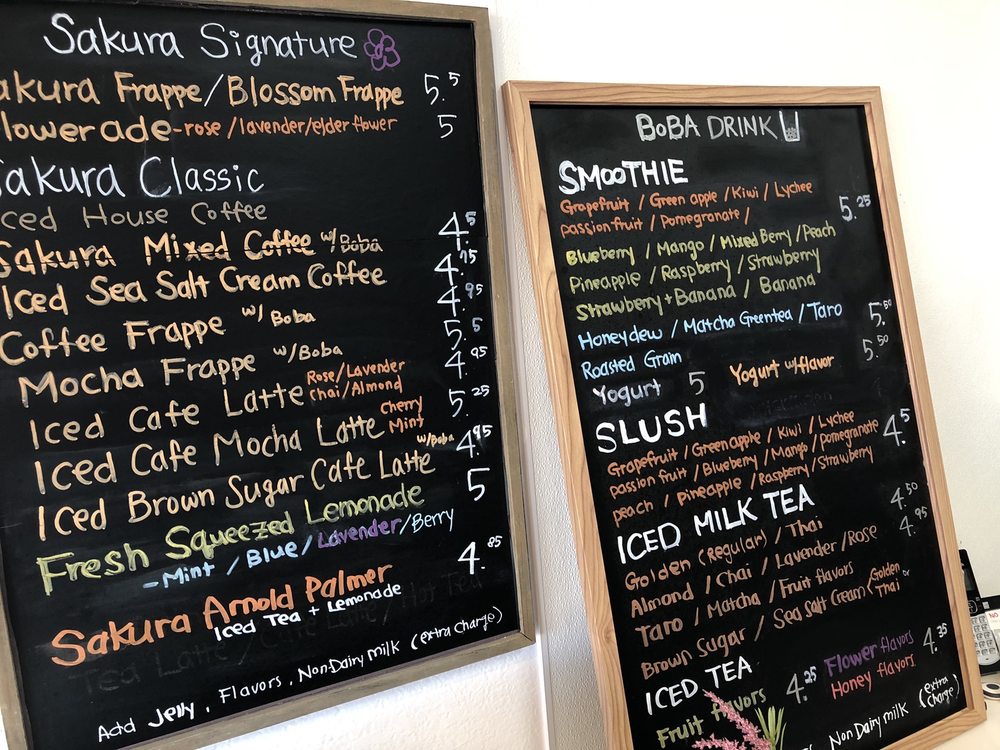 Sakura Signature
akura Frappe/Blossom Frappe 5.5
lowerade-rose/lavender/elderflower 5
Sakura Classic
Iced House Coffee
Sakura Mixed Coffee w/Boba 4.5
Iced Sea Salt Cream Coffee 4.75
Coffee Frappe w/Boba 4.95
Mocha Frappe w/Boba 5.5
Iced Cafe Latte Rose/Lavender 4.95
Chai/Almond
Iced Cafe Mocha Latte Cherry 5.25
Mint
Iced Brown Sugar Cafe Latte w/Boba 4.95
Fresh Squeezed Lemonade 5
-Mint / Blue / Lavender/Berry
Sakura Arnold Palmer 4.85
Iced Tea + Lemonade
Tea Latte
Add Jelly, Flavors, NonDairy Milk (extra charge)
BOBA DRINK
SMOOTHIE
Grapefruit / Green apple / Kiwi / Lychee
passionfruit / Pomegranate / 5.25
Blueberry / Mango / Mixed Berry / Peach
Pineapple / Raspberry / Strawberry
Strawberry+Banana / Banana
Honeydew / Matcha Greentea / Taro 5.50
Roasted Grain 5.50
Yogurt 5 Yogurt w/flavor
SLUSH
Grapefruit / Green apple / Kiwi / Lychee 4.5
passion fruit / Blueberry / Mango / pomegranate
peach / pineapple / Raspberry / Strawberry
ICED MILK TEA
Golden (Regular) / Thai 4.50
Almond / Chai / Lavender / Rose 4.95
Taro / Matcha / Fruit flavors
Brown Sugar / Sea Salt Cream (Golden or
Thai
ICED TEA
Fruit flavors 4.25 Flower flavors 4.35
Honey flavors
NonDairy milk (extra
charge)